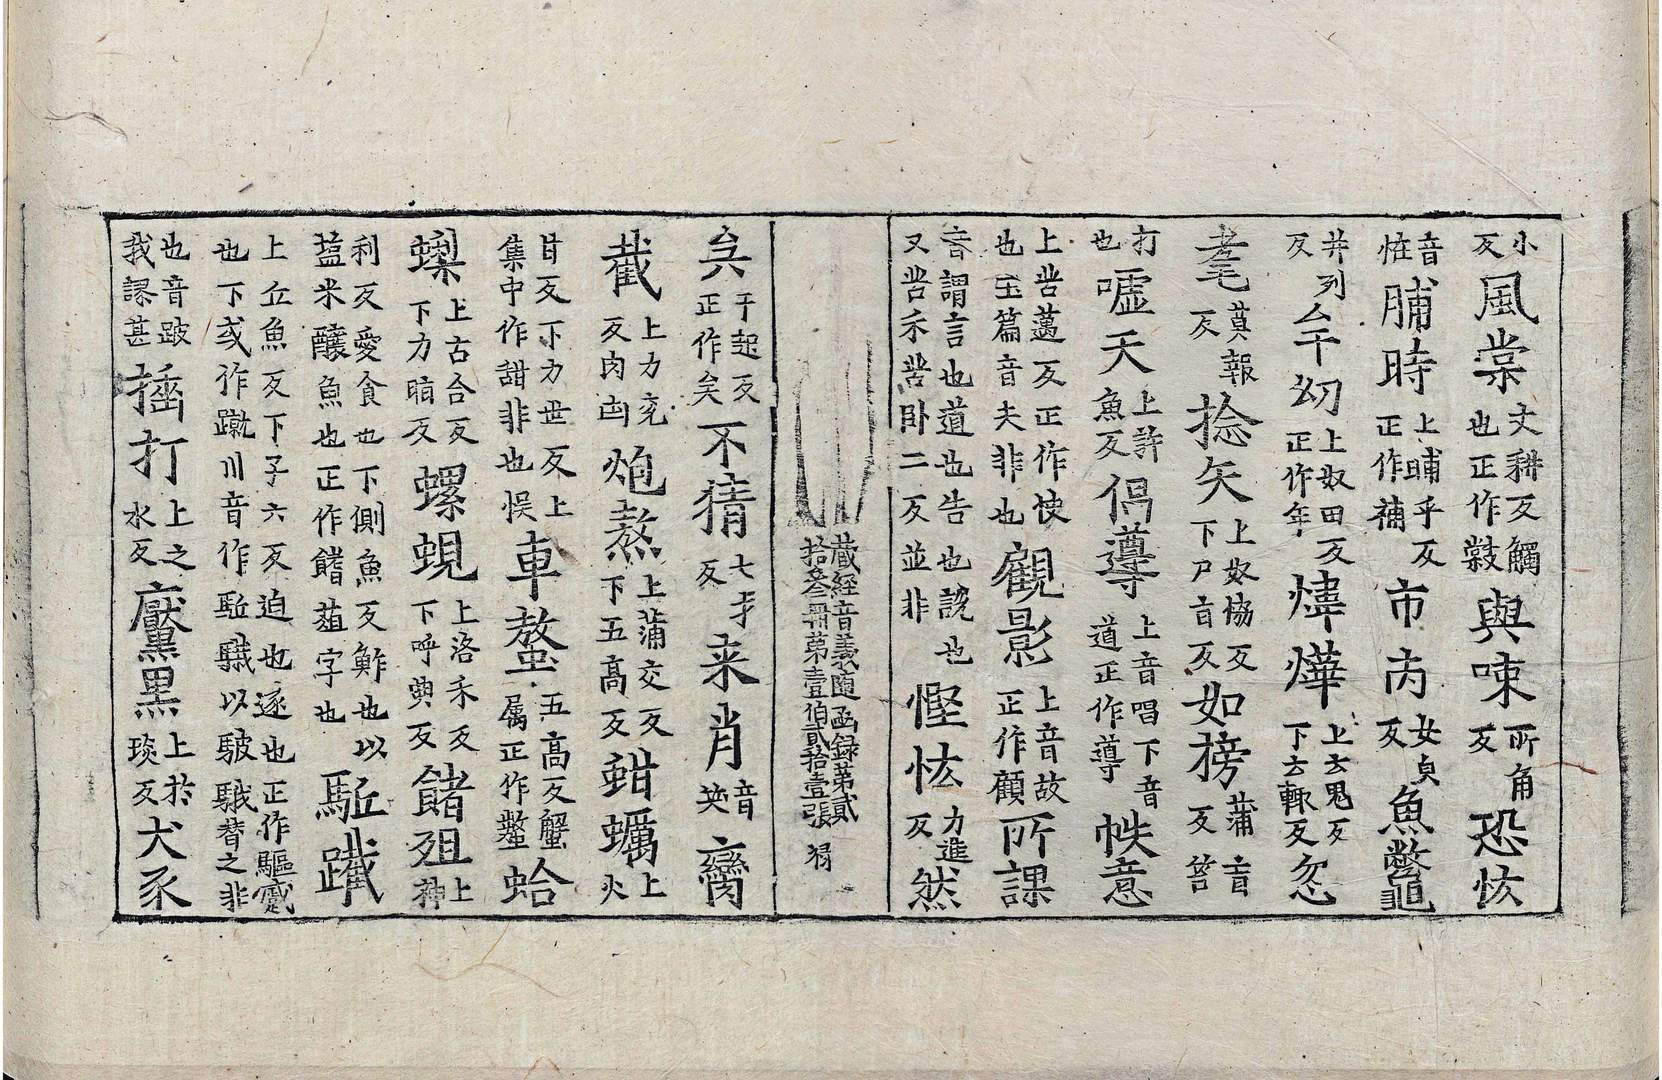 小反風棠丈耕反觸也正作敹與唻所角反恐恀
音恠脯時上晡乎反正作補市內女貞反魚鼈
并列反年㓜上奴田反正作年煒燁上云鬼反下云輒反忽
耄莫報反捻矢上奴協反下尸盲反如榜蒲盲反笞
打也噓天上許魚反倡導上音唱下音道正作導帙意
上苦蓋反正作愾也玉篇音夫非也觀影上音故正作顧所課
音謂言也道也告也說也又苦禾苦卧二反並非慳恡力進反然
藏經音義隨函録第貳拾叁冊第壹伯貳拾壹張
矣于起反正作矣不猜七才反来肖音英臠
截上力兖反肉凾炮熬上蒲交反下五高反蚶蠣上火
甘反下力世反上集中作甜非也悮車螯五高反蟹属正作鼇蛤
蠏上古合反下力買反螺蜆上洛禾反下呼典反䭧殂上神
利反愛食也下側魚反鮓也以塩米釀魚也正作饍葅字也駈蹴
上丘魚反下子六反迫也逐也正作驅蹙也下或作蹴川音作駈䮭以駊䮭替之非
也音跛我謬甚插打上之水反黶黑上於琰反犬豕